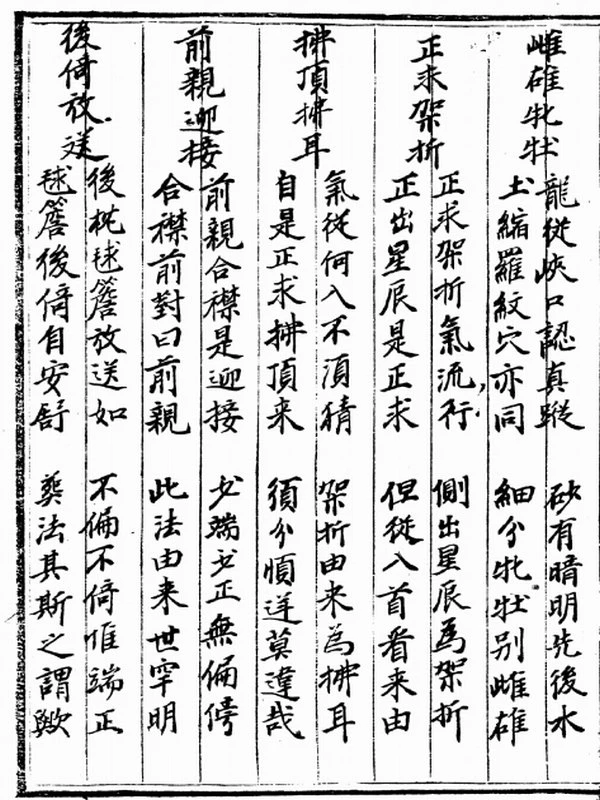 雌雄牝牡
龍從峽口認真蹤 砂有暗明先後水
土縮羅紋穴亦同 細分牝牡别雌雄
正求架折
正求架折氣流行 側出星辰為架折
正出星辰是正求 但從入首看来由
拂頂拂耳
氣從何入不須猜 架折由来為拂耳
自是正求拂頂来 須分順逆莫違哉
前親迎接
前親合襟是迎接 必端必正無偏傍
合襟前對曰前親 此法由来世罕明
後倚放送
後枕毬簷放送如 不偏不倚惟端正
毬簷後倚自安舒 葬法其斯之謂歟